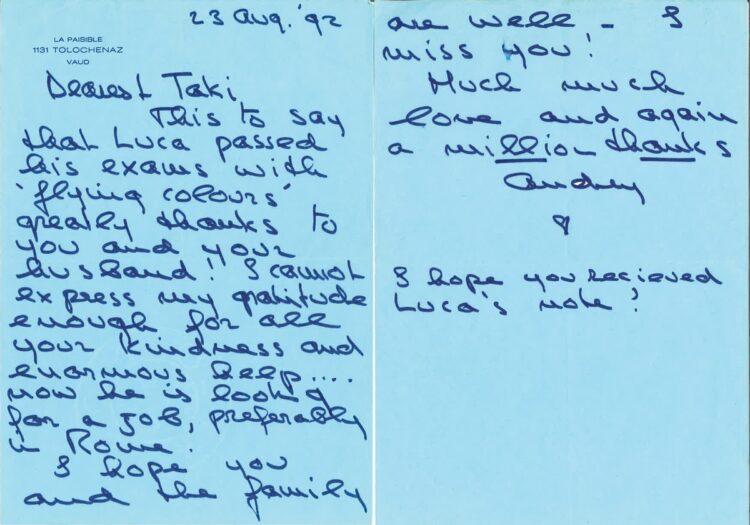 23 Aug. '92
LA PAISIBLE
1131 TOLOCHENAZ
VAUD
Dearest Taki,
This to say
that Luca passed
his exams with
'flying colours'
greatly thanks to
you and your
husband! I cannot
express my gratitude
enough for all
your kindness and
enormous help....
now he is looking
for a job, preferably
in Rome.
I hope you
and the family
are well – I
miss you!
Much much
love and again
a million thanks
Audrey
I hope you recieved
Luca's note?